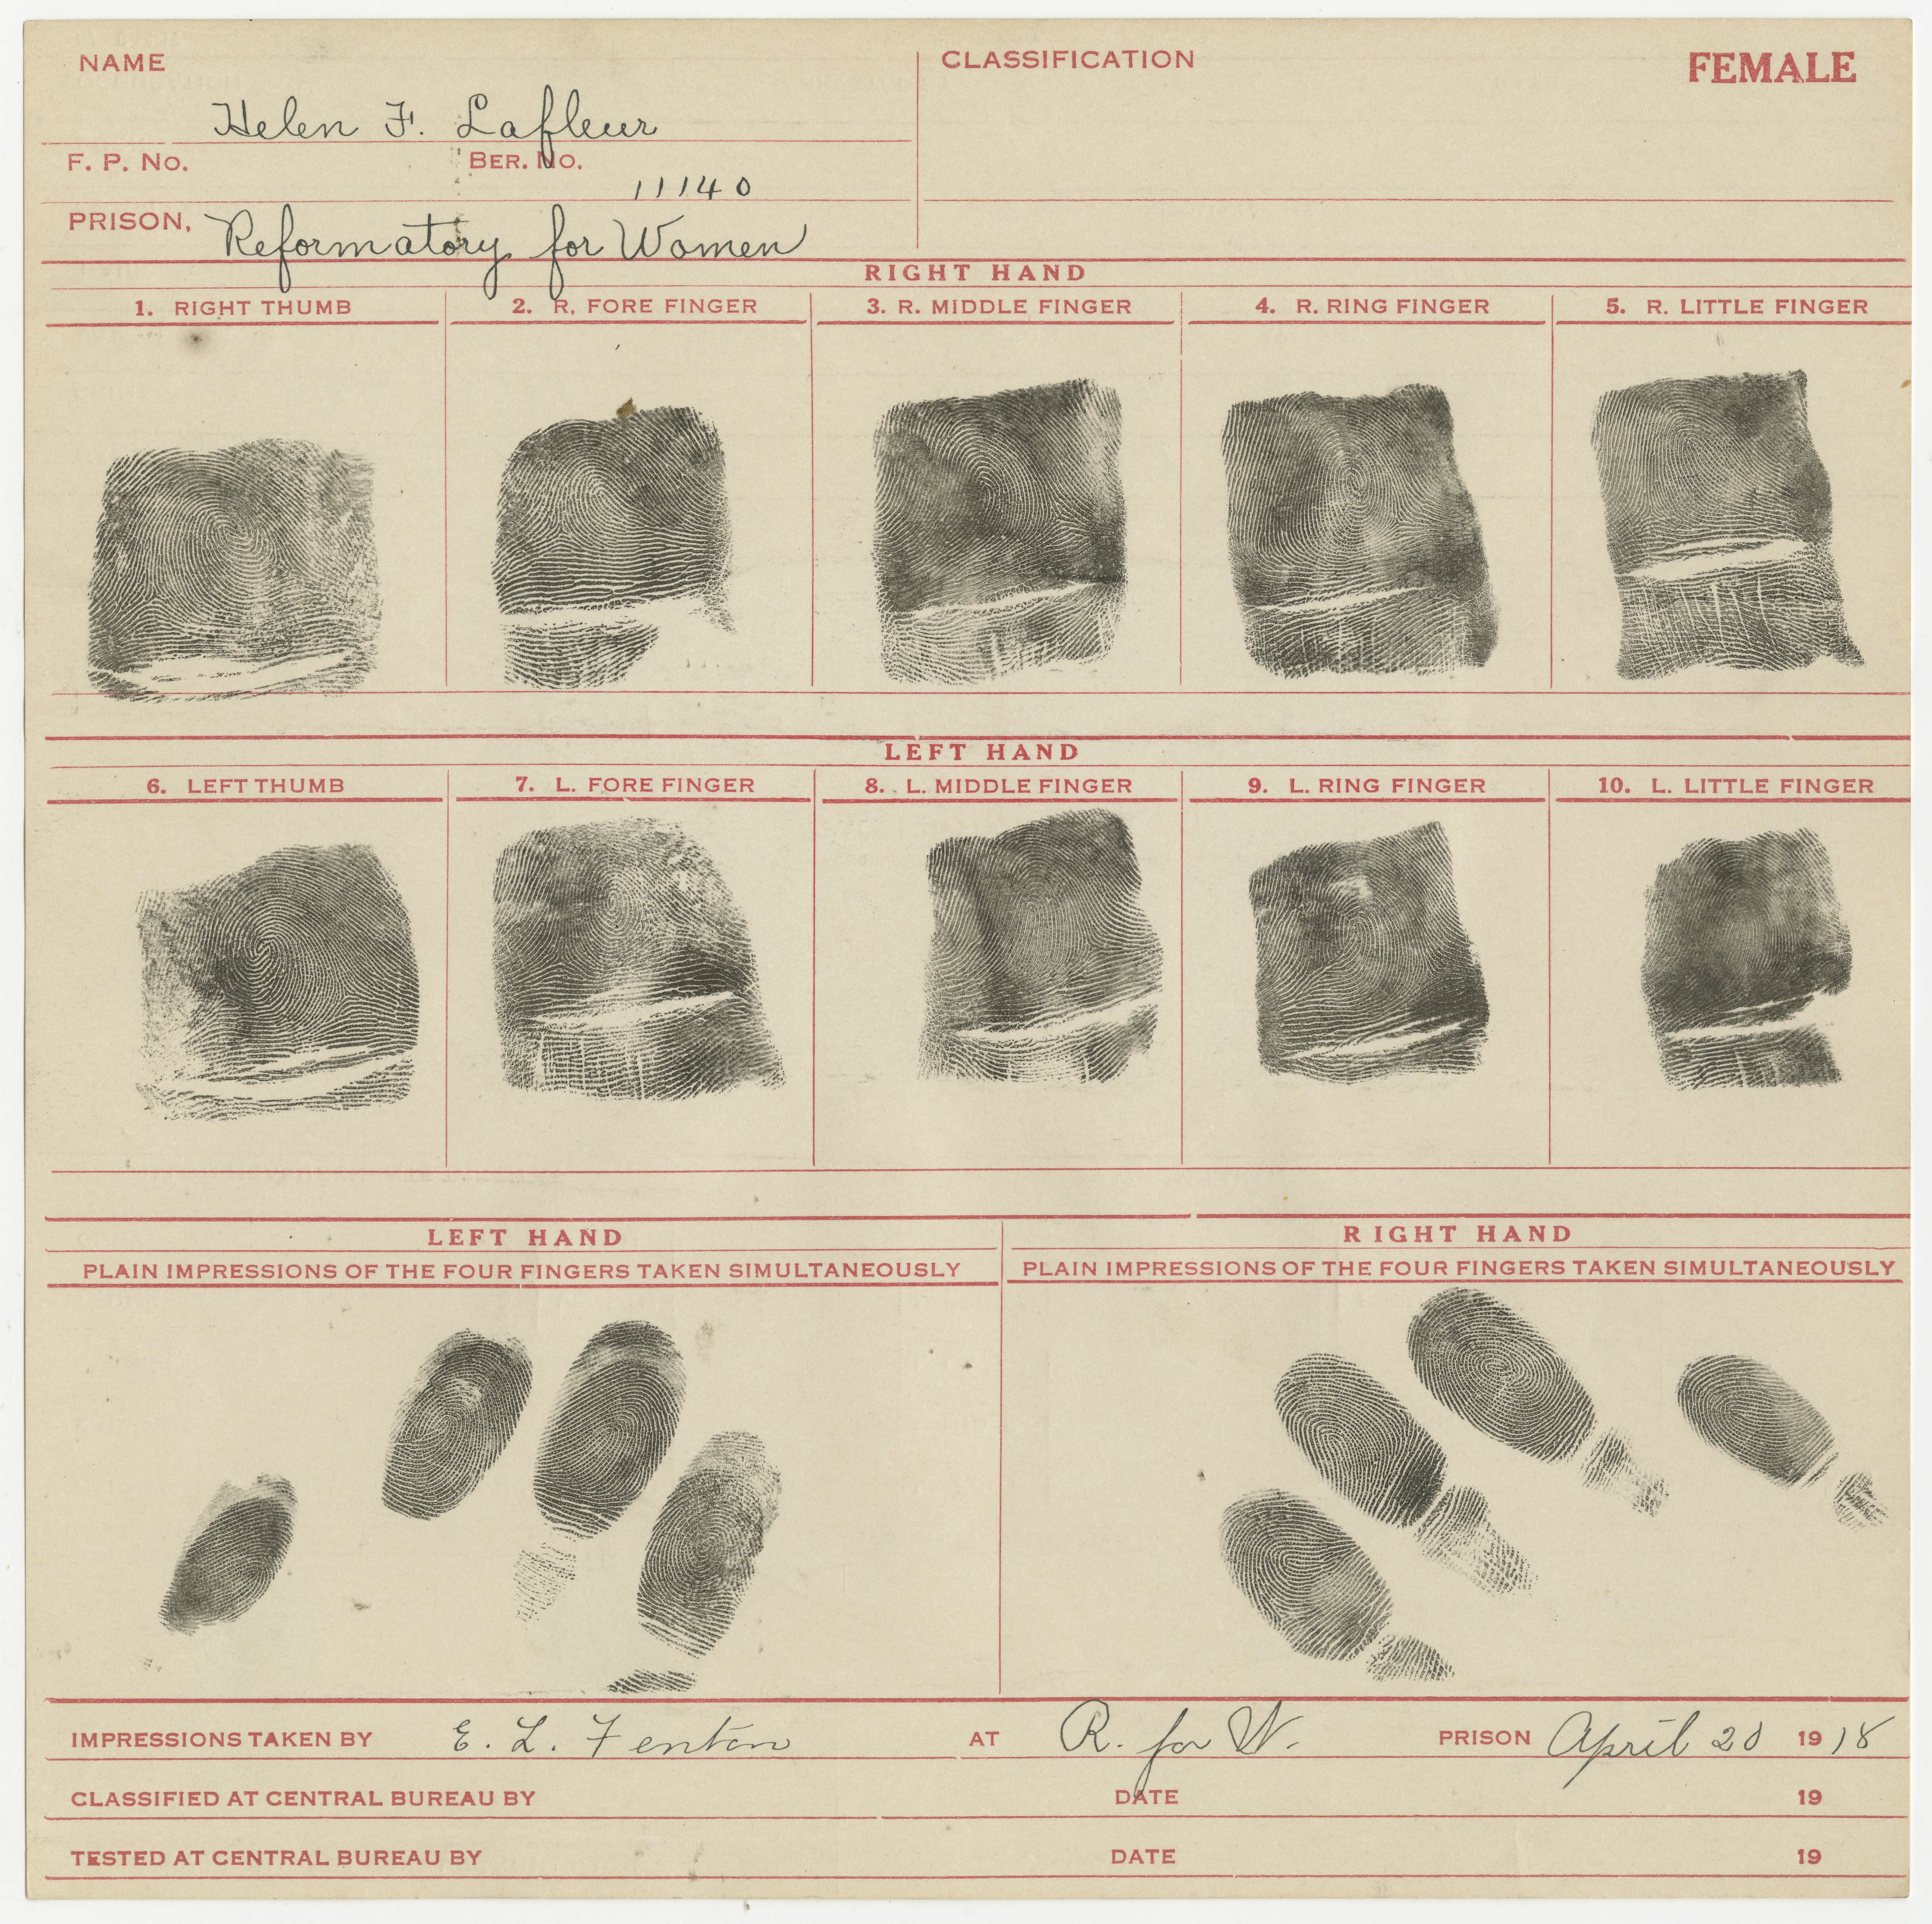 NAME
Helen F. Lafleur
CLASSIFICATION
FEMALE
F. P. No.
BER. No.
11140
PRISON, Reformatory for Women
RIGHT HAND
1. RIGHT THUMB
2. R. FORE FINGER
3. R. MIDDLE FINGER
4. R. RING FINGER
5. R. LITTLE FINGER
LEFT HAND
6. LEFT THUMB
7. L. FORE FINGER
8. L. MIDDLE FINGER
9. L. RING FINGER
10. L. LITTLE FINGER
LEFT HAND
PLAIN IMPRESSIONS OF THE FOUR FINGERS TAKEN SIMULTANEOUSLY
RIGHT HAND
PLAIN IMPRESSIONS OF THE FOUR FINGERS TAKEN SIMULTANEOUSLY
IMPRESSIONS TAKEN BY E. L. Fenton AT R. for W. PRISON April 20 1918
CLASSIFIED AT CENTRAL BUREAU BY DATE 19
TESTED AT CENTRAL BUREAU BY DATE 19